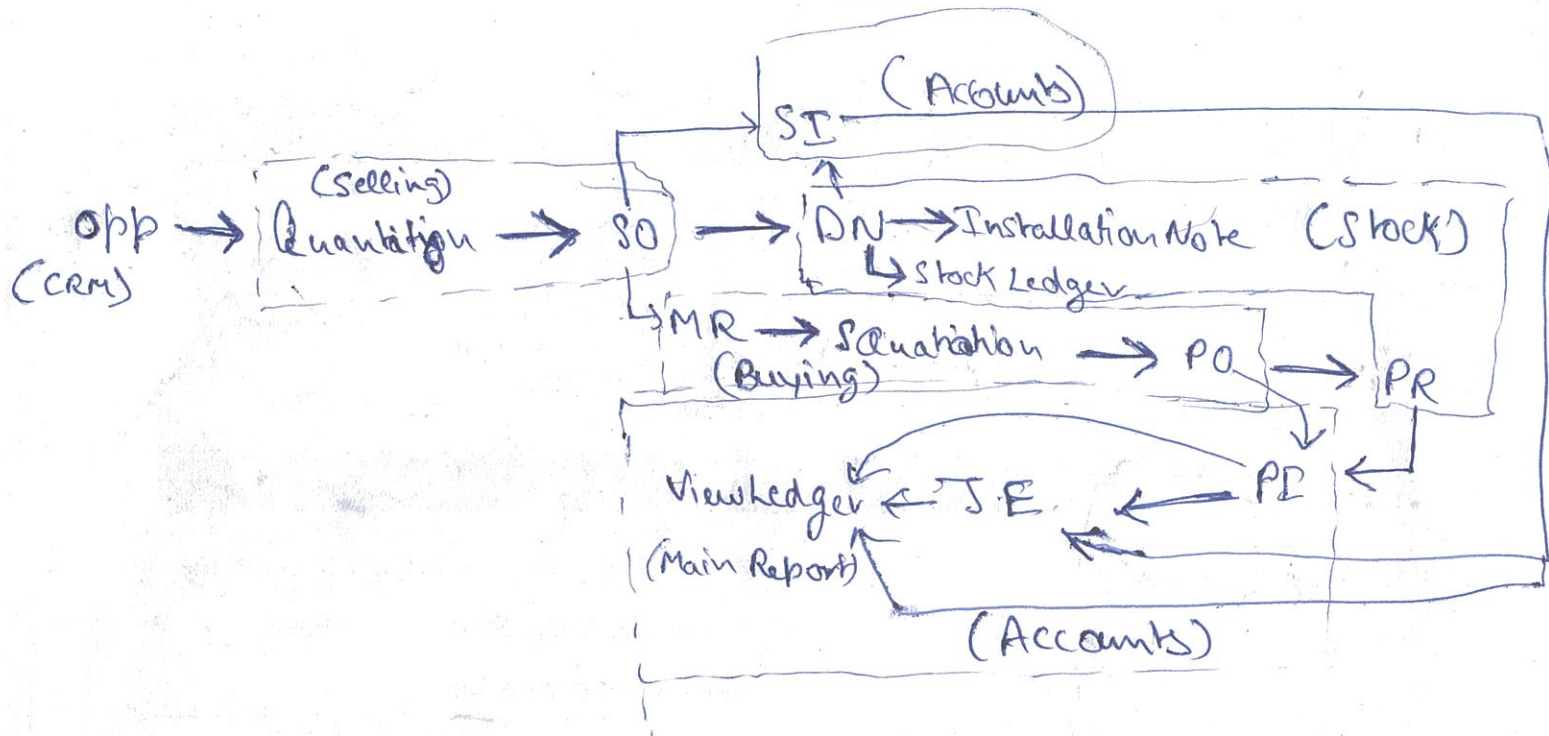 (Accounts)
SI
(Selling)
Opp → Quantation → SO → DN → Installation Note (Stock)
(CRM)
Stock Ledger
MR → SQuatation → PO → PR
(Buying)
View Ledger ← JE ← PI
(Main Report)
(Accounts)